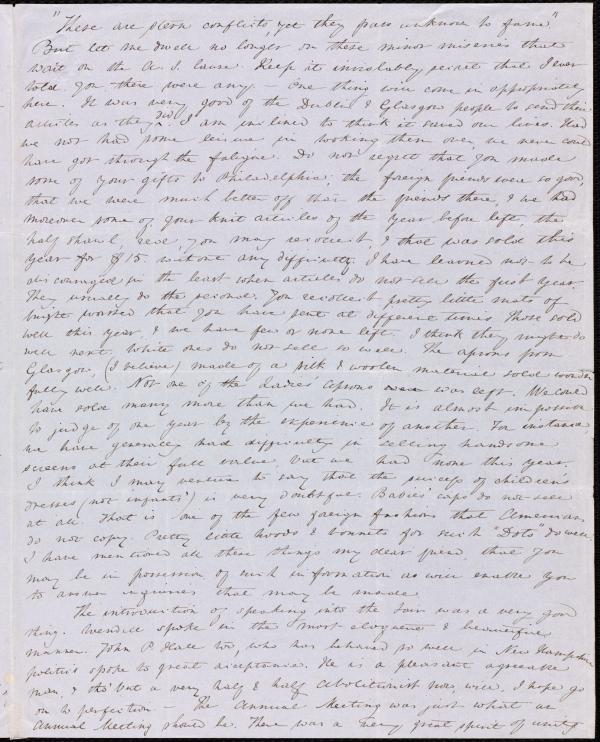 "These are stern conflicts, yet they pass unknown to fame"
But let me dwell no longer on these minor miseries that
wait on the A. S. cause. Keep it inviolably secret that I ever
told you there were any – One thing will come in appropriately
here. It was very good of the Dublin & Glasgow people to send their
articles as they did. I am inclined to think it saved our lives. Had
we not had some leisure in looking them over, we never could
have got through the fatigue. Do not regret that you made
some of your gifts to Philadelphia, the foreign friends were so good,
that we were much better off than the friends there, & we had
moreover some of your knit articles of the year before left, the
half shawl, you may recollect, & that was sold this
year for $15. without any difficulty. I have learned not to be
discouraged in the least when articles do not sell the first year.
They usually do the second. You recollect pretty little mats of
bright worsted that you have sent at different times. Those sold
well this year, & we have few or none left. I think they might do
well next. White ones do not sell so well. The aprons from
Glasgow, (I believe) made of a silk & woolen material sold wonder
fully well. Not one of the ladies' aprons was left. We could
have sold many more than we had. It is almost impossible
to judge of one year by the experience of another. For instance
we have generally had difficulty in selling handsome
screens at their full value, but we had none this year.
I think I may venture to say that the success of children's
dresses (not infants') is very doubtful. Babies' caps do not sell
at all. That is one of the few foreign fashions that Americans
do not copy. Pretty little hoods & bonnets for such "Dots" do well.
I have mentioned all these things my dear friend, that you
may be in possession of such information as will enable you
to answer inquiries that may be made.
The introduction of speaking into the Fair was a very good
thing. Wendell spoke in the most eloquent & beautiful
manner. John P. Hale too, who has behaved so well in New Hampshire
politics spoke to great acceptance. He is a pleasant agreeable
man, & tho' but a very half & half abolitionist now, will, I hope go
on to perfection – The Annual Meeting was just what an
Annual Meeting should be. There was a very great spirit of unity